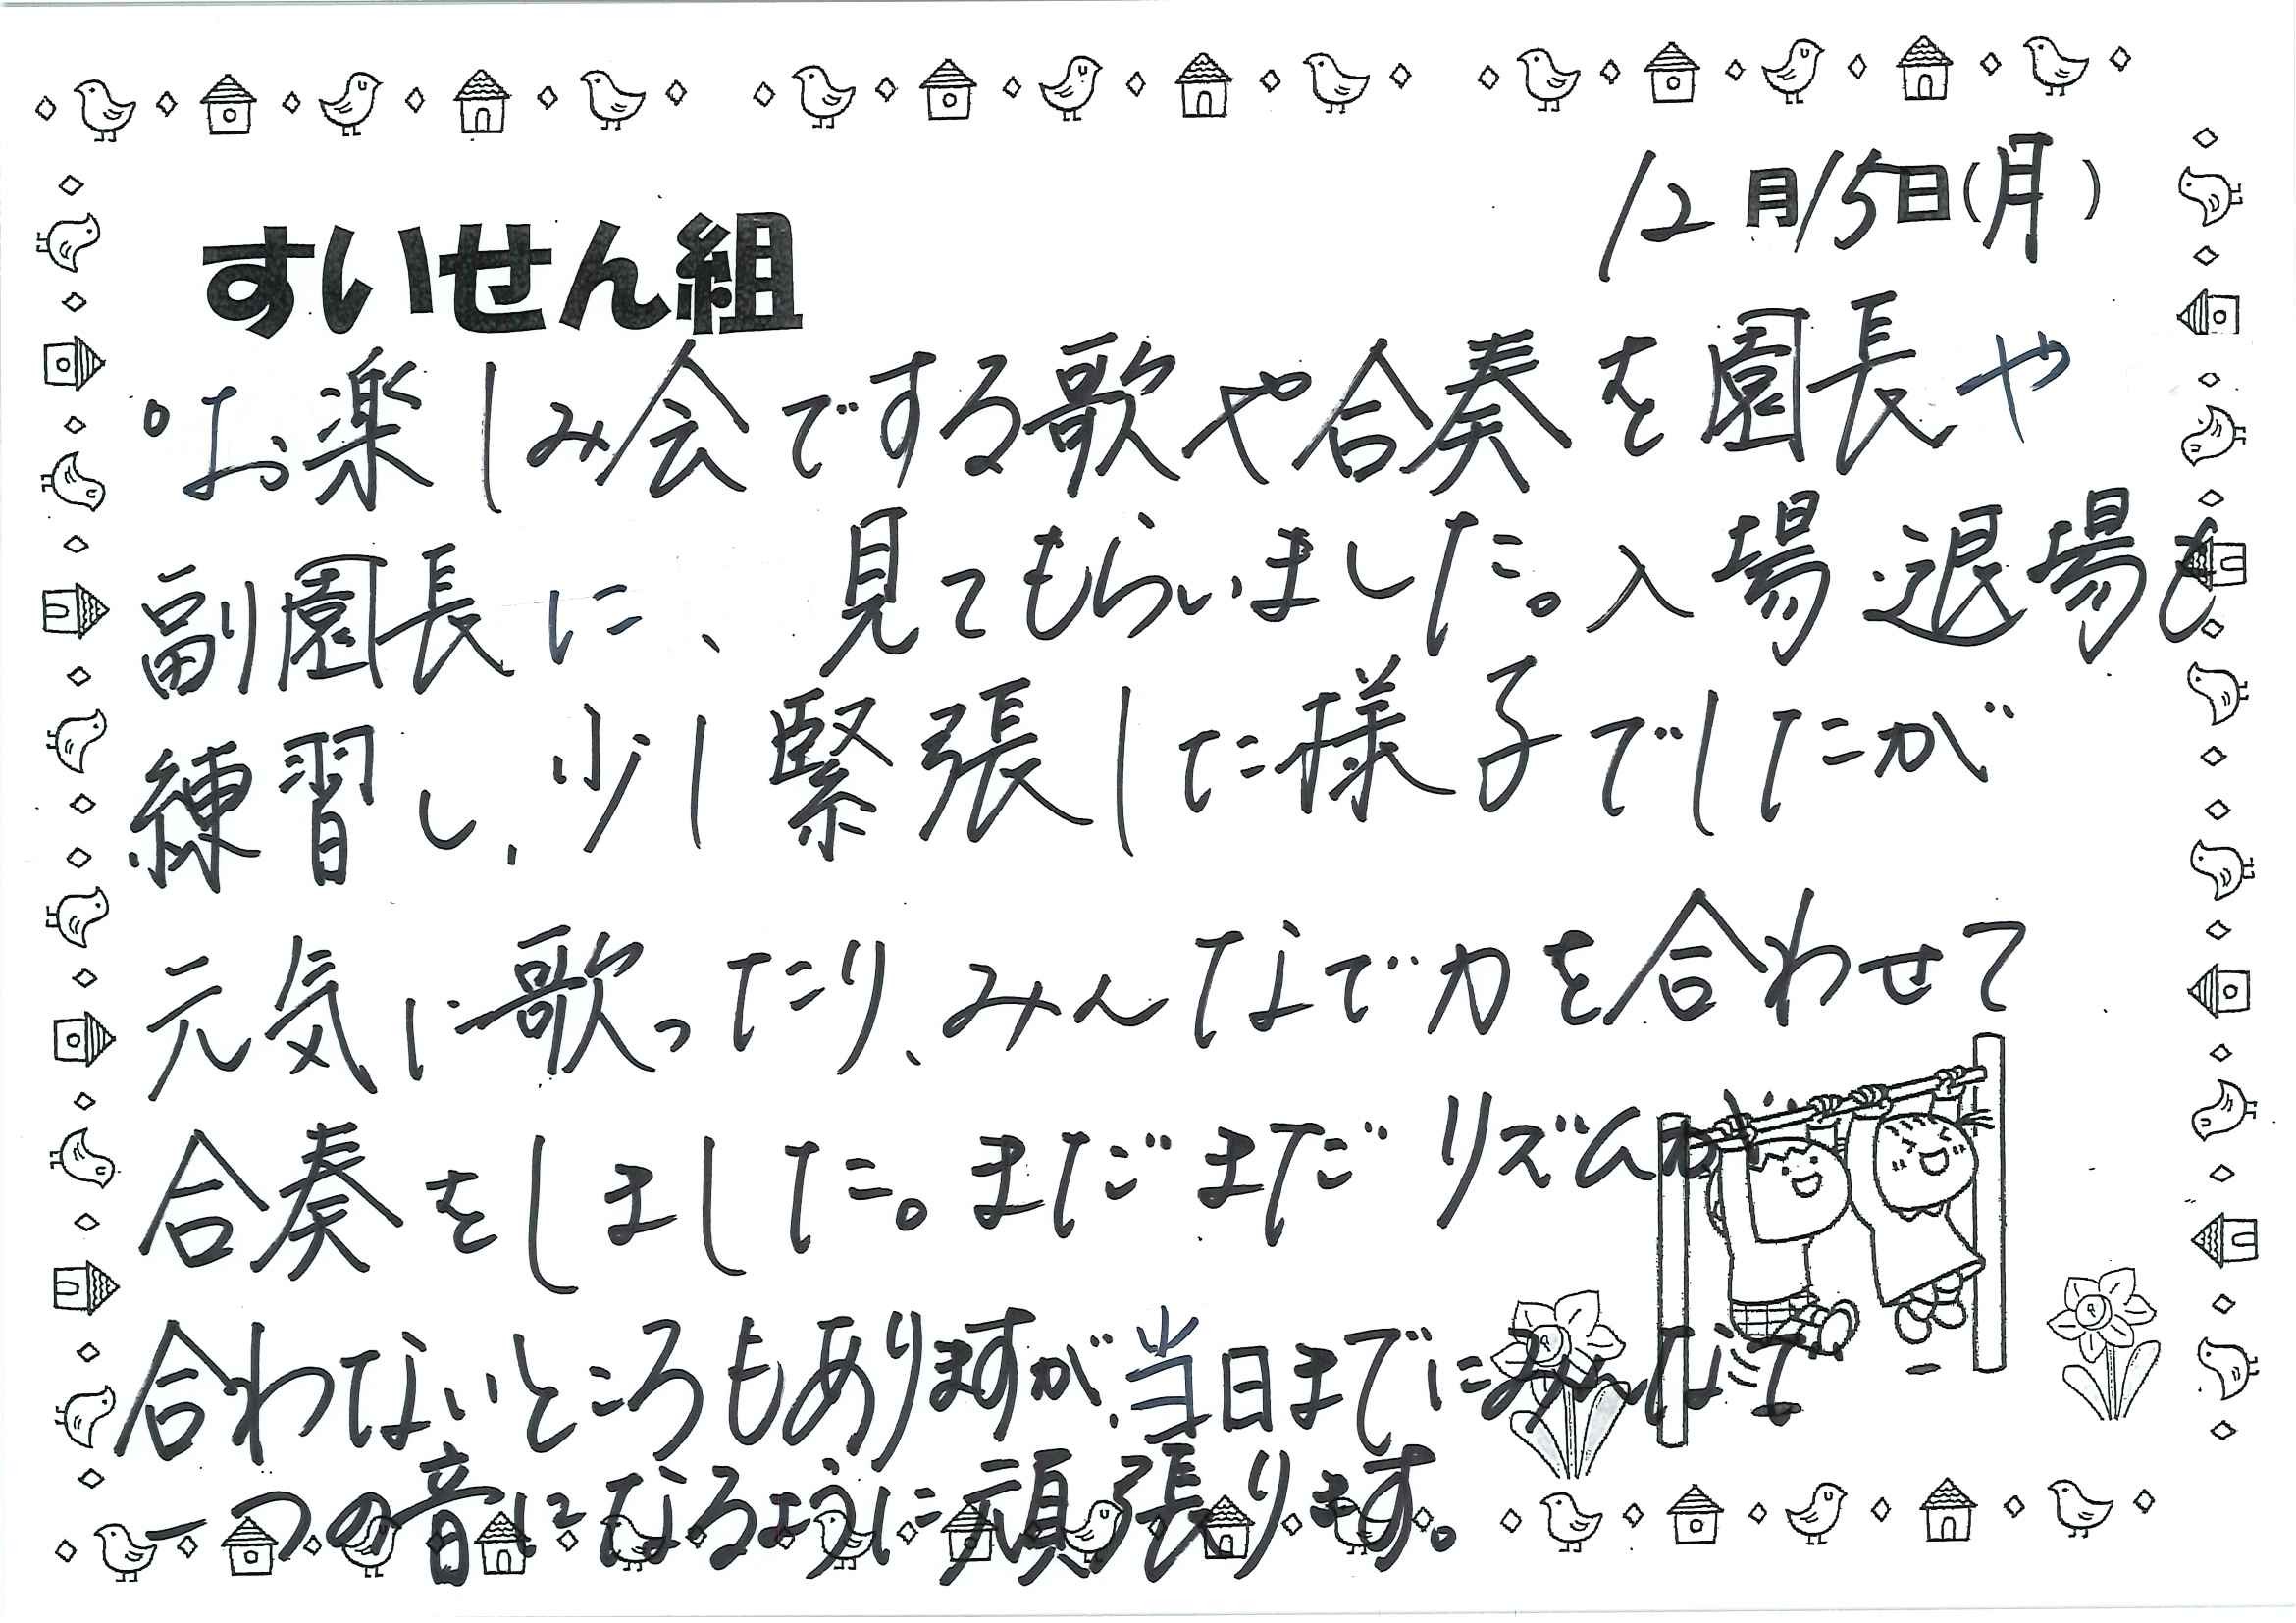 12月15日(月)
すいせん組
°お楽しみ会でする歌や合奏を園長や
副園長に、見てもらいました。入場退場も
練習し、少し緊張した様子でしたが
元気に歌ったり、みんなで力を合わせて
合奏をしました。まだまだリズムが
合わないところもありますが、当日までにみんなで
一つの音になるように頑張ります。